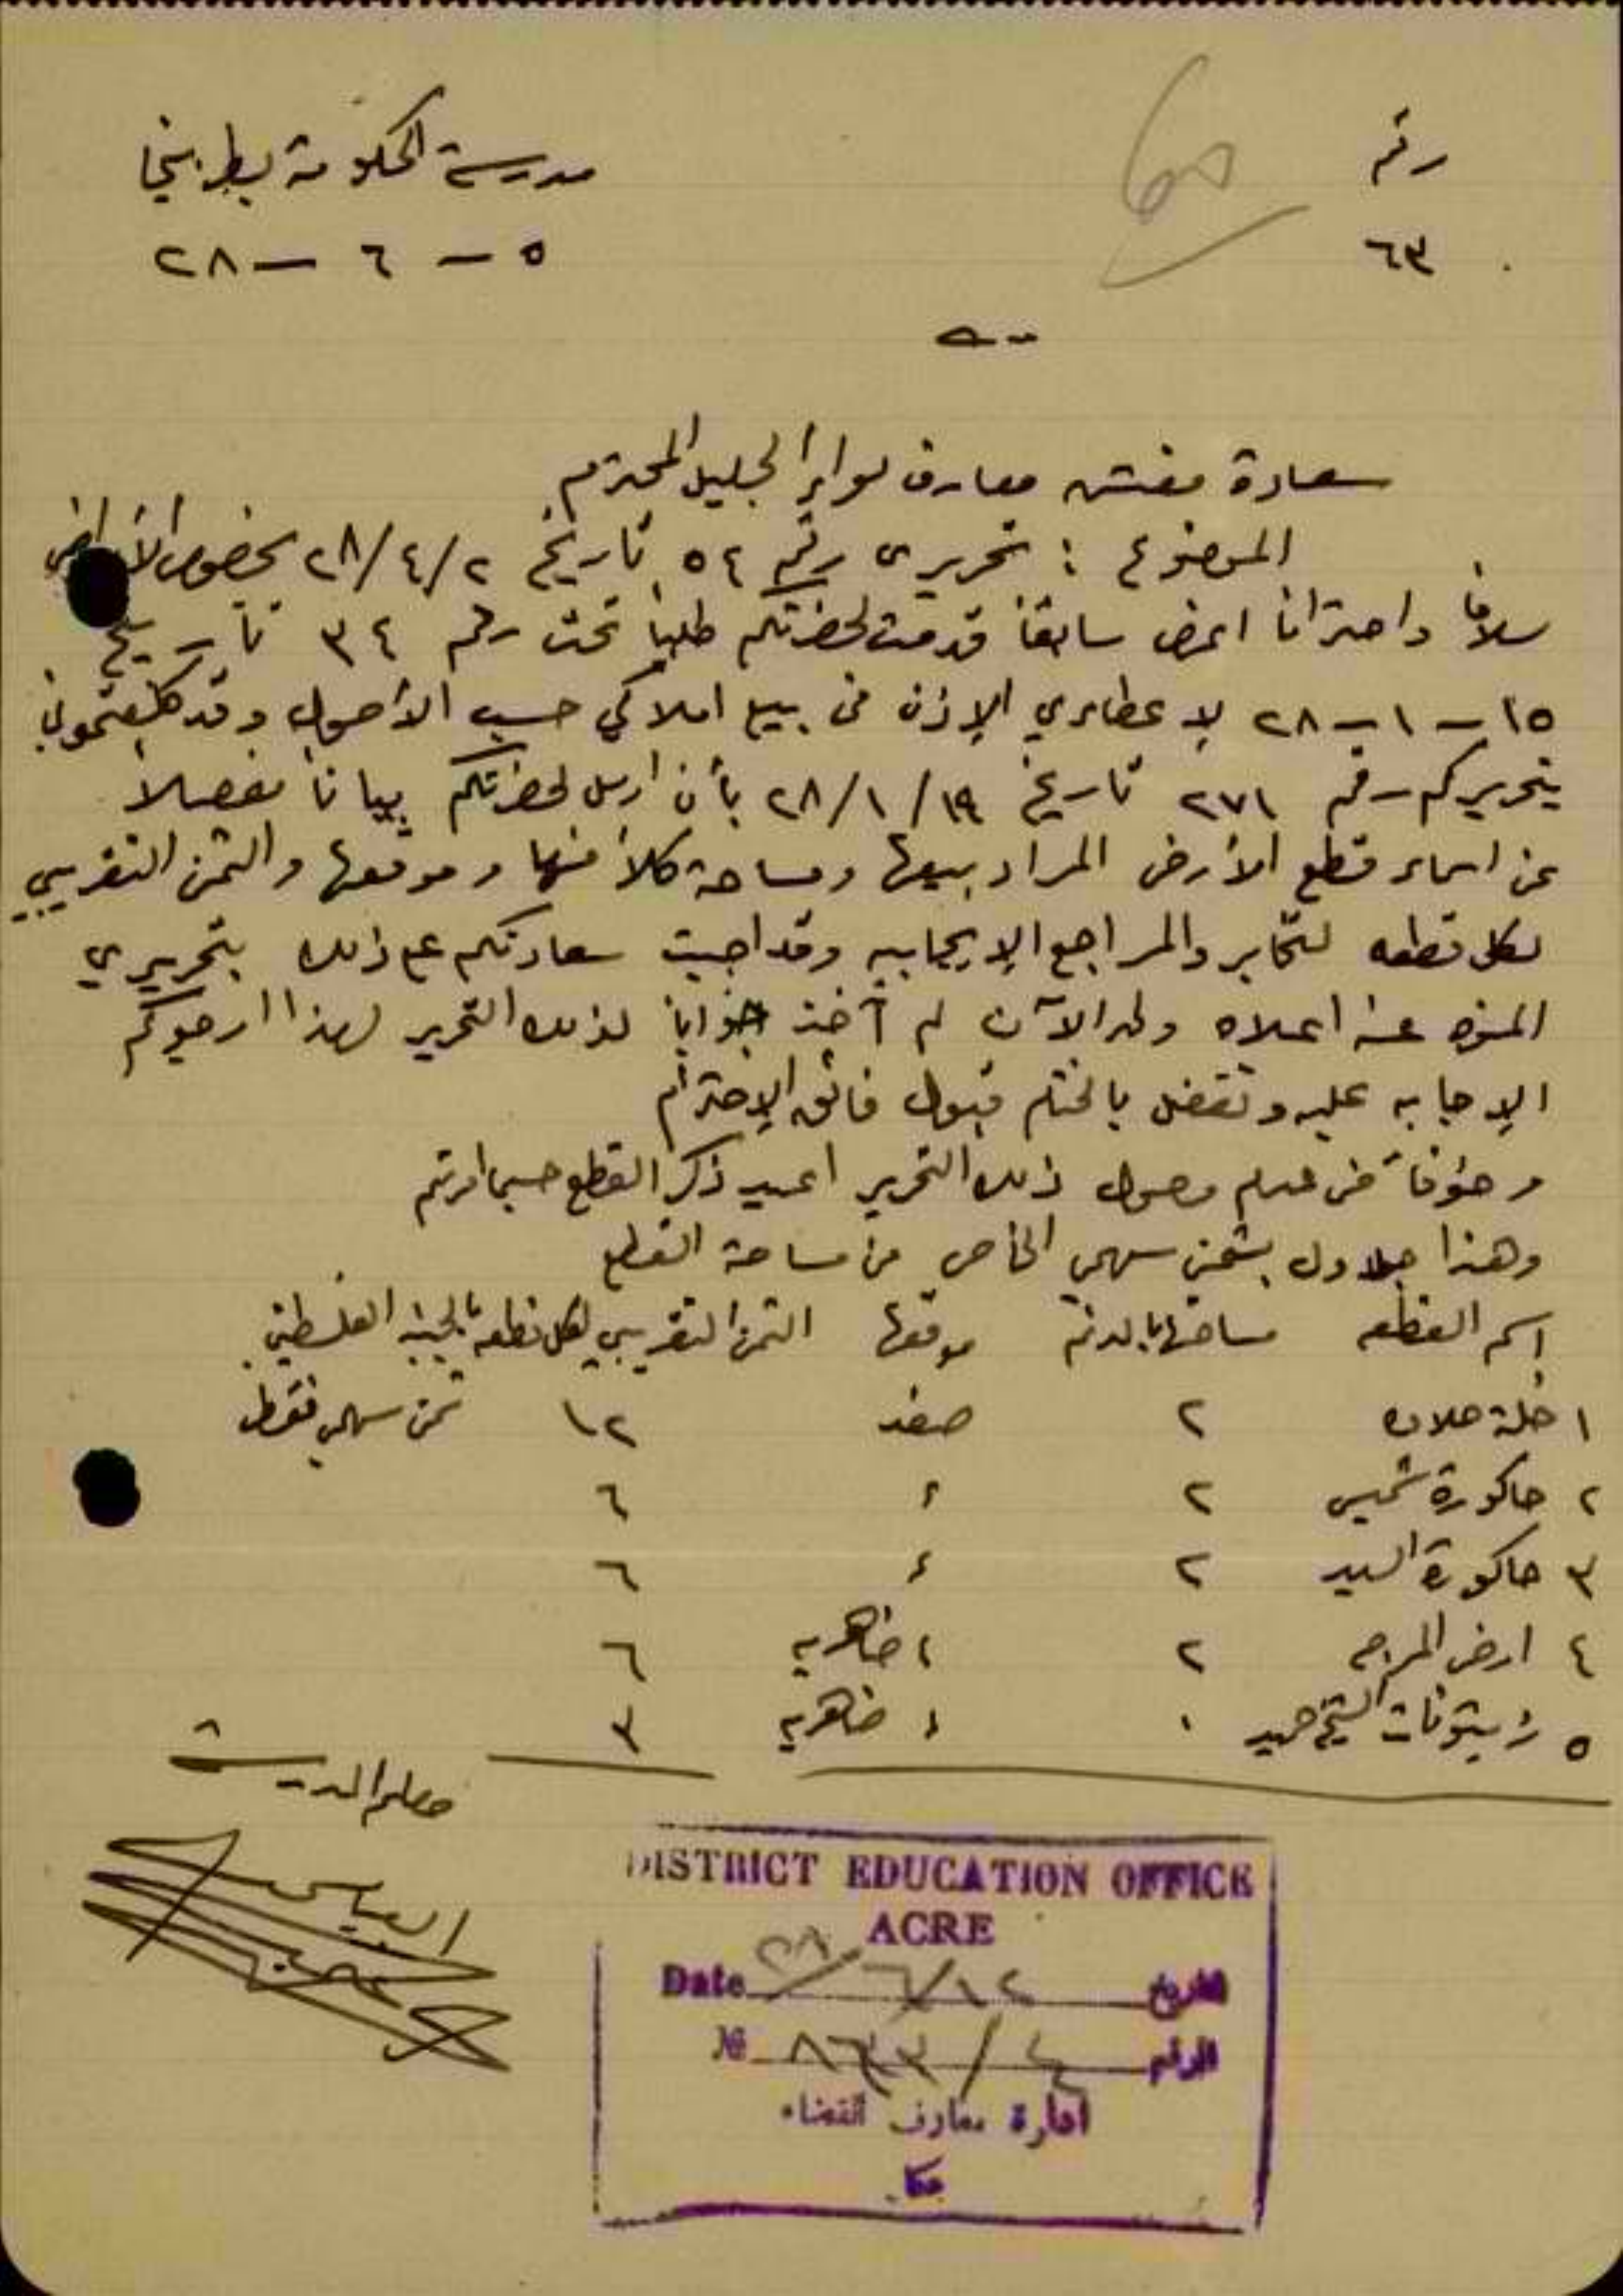 رقم
٦٣
60
مدرسة الحكومة بطربيخا
٥ - ٦ - ٢٨
سعادة مفتش معارف لواء الجليل المحترم
الموضوع : تحريري رقم ٥٤ تاريخ ٢/٤/٢٨ بخصوص الأراضي
سلاما واحتراما اعرض سابقا قدمت لحضرتكم طلبا تحت رقم ٣٤ تاريخ
١٥ - ١ - ٢٨ لإعطائي الإذن في بيع املاكي حسب الأصول وقد كلفتموني
بتحريركم رقم ٢٧١ تاريخ ١٩/١/٢٨ بأن ارسل لحضرتكم بيانا مفصلا
عن اسماء قطع الأرض المراد بيعها ومساحة كلا منها وموقعها والثمن التقريبي
لكل قطعه لتخابر والمراجع الإيجابيه وقد اجبت سعادتكم على ذلك بتحريري
المنوه عنه اعلاه ولحد الآن لم آخذ جوابا لذلك التحرير لهذا ارجوكم
الإجابه عليه وتفضل بالختام قبول فائق الإحترام
وخوفا من عدم وصول ذلك التحرير اعيد ذكر القطع حسبما امرتم
وهذا جدول بثمن سهمي الخاص من مساحة القطع
اسم القطعه مساحتها بالدنم موقعها الثمن التقريبي لكل قطعه بالجنيه الفلسطيني
١ خلة ٢ صفد ١٢ ثمن سهمي فقط
٢ حاكورة شميس ٢ ٦
٣ حاكورة السيد ٢ ٦
٤ ارض المرجه ٢ ضاهريه ٦
٥ زيتونات الشيخ حميد ٠ ضاهريه ٣
معلم المدرسة
DISTRICT EDUCATION OFFICE
ACRE
Date ٢٨/٦/١٢ التاريخ
№ ٨٦٣٣/٤ الرقم
ادارة معارف القضاء
عكا